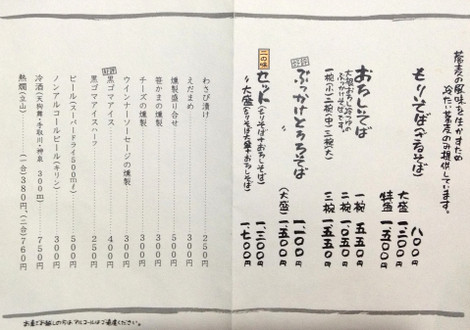 蕎麦の風味を生かすため
冷たい蕎麦のみ提供しています。
もりそば(ざるそば) 八〇〇円
大盛 一、二〇〇円
特盛
おろしそば
大根おろし、かつおの
ぶっかけそばです。
一椀(小)二椀(中)三椀(大)
一椀 八五〇円
二椀 一、〇五〇円
三椀 一、五五〇円
好評
ぶっかけとろろそば 一、一〇〇円
(大盛) 一、五〇〇円
二の味
セット(もりそば+おろしそば) 一、三〇〇円
〃 大盛(もりそば大盛+おろしそば) 一、七〇〇円
わさび漬け 250円
えだまめ 300円
燻製盛り合せ 500円
笹かまの燻製 300円
チーズの燻製 300円
ウインナーソーセージの燻製 300円
好評
黒ゴマアイス 400円
黒ゴマアイスハーフ 250円
ビール(スーパードライ500ml) 500円
ノンアルコールビール(キリン) 300円
冷酒(天狗舞・手取川・神泉 300ml) 750円
熱燗(立山) (一合)380円、(二合)760円
お車でお越しの方はアルコールはご遠慮ください。